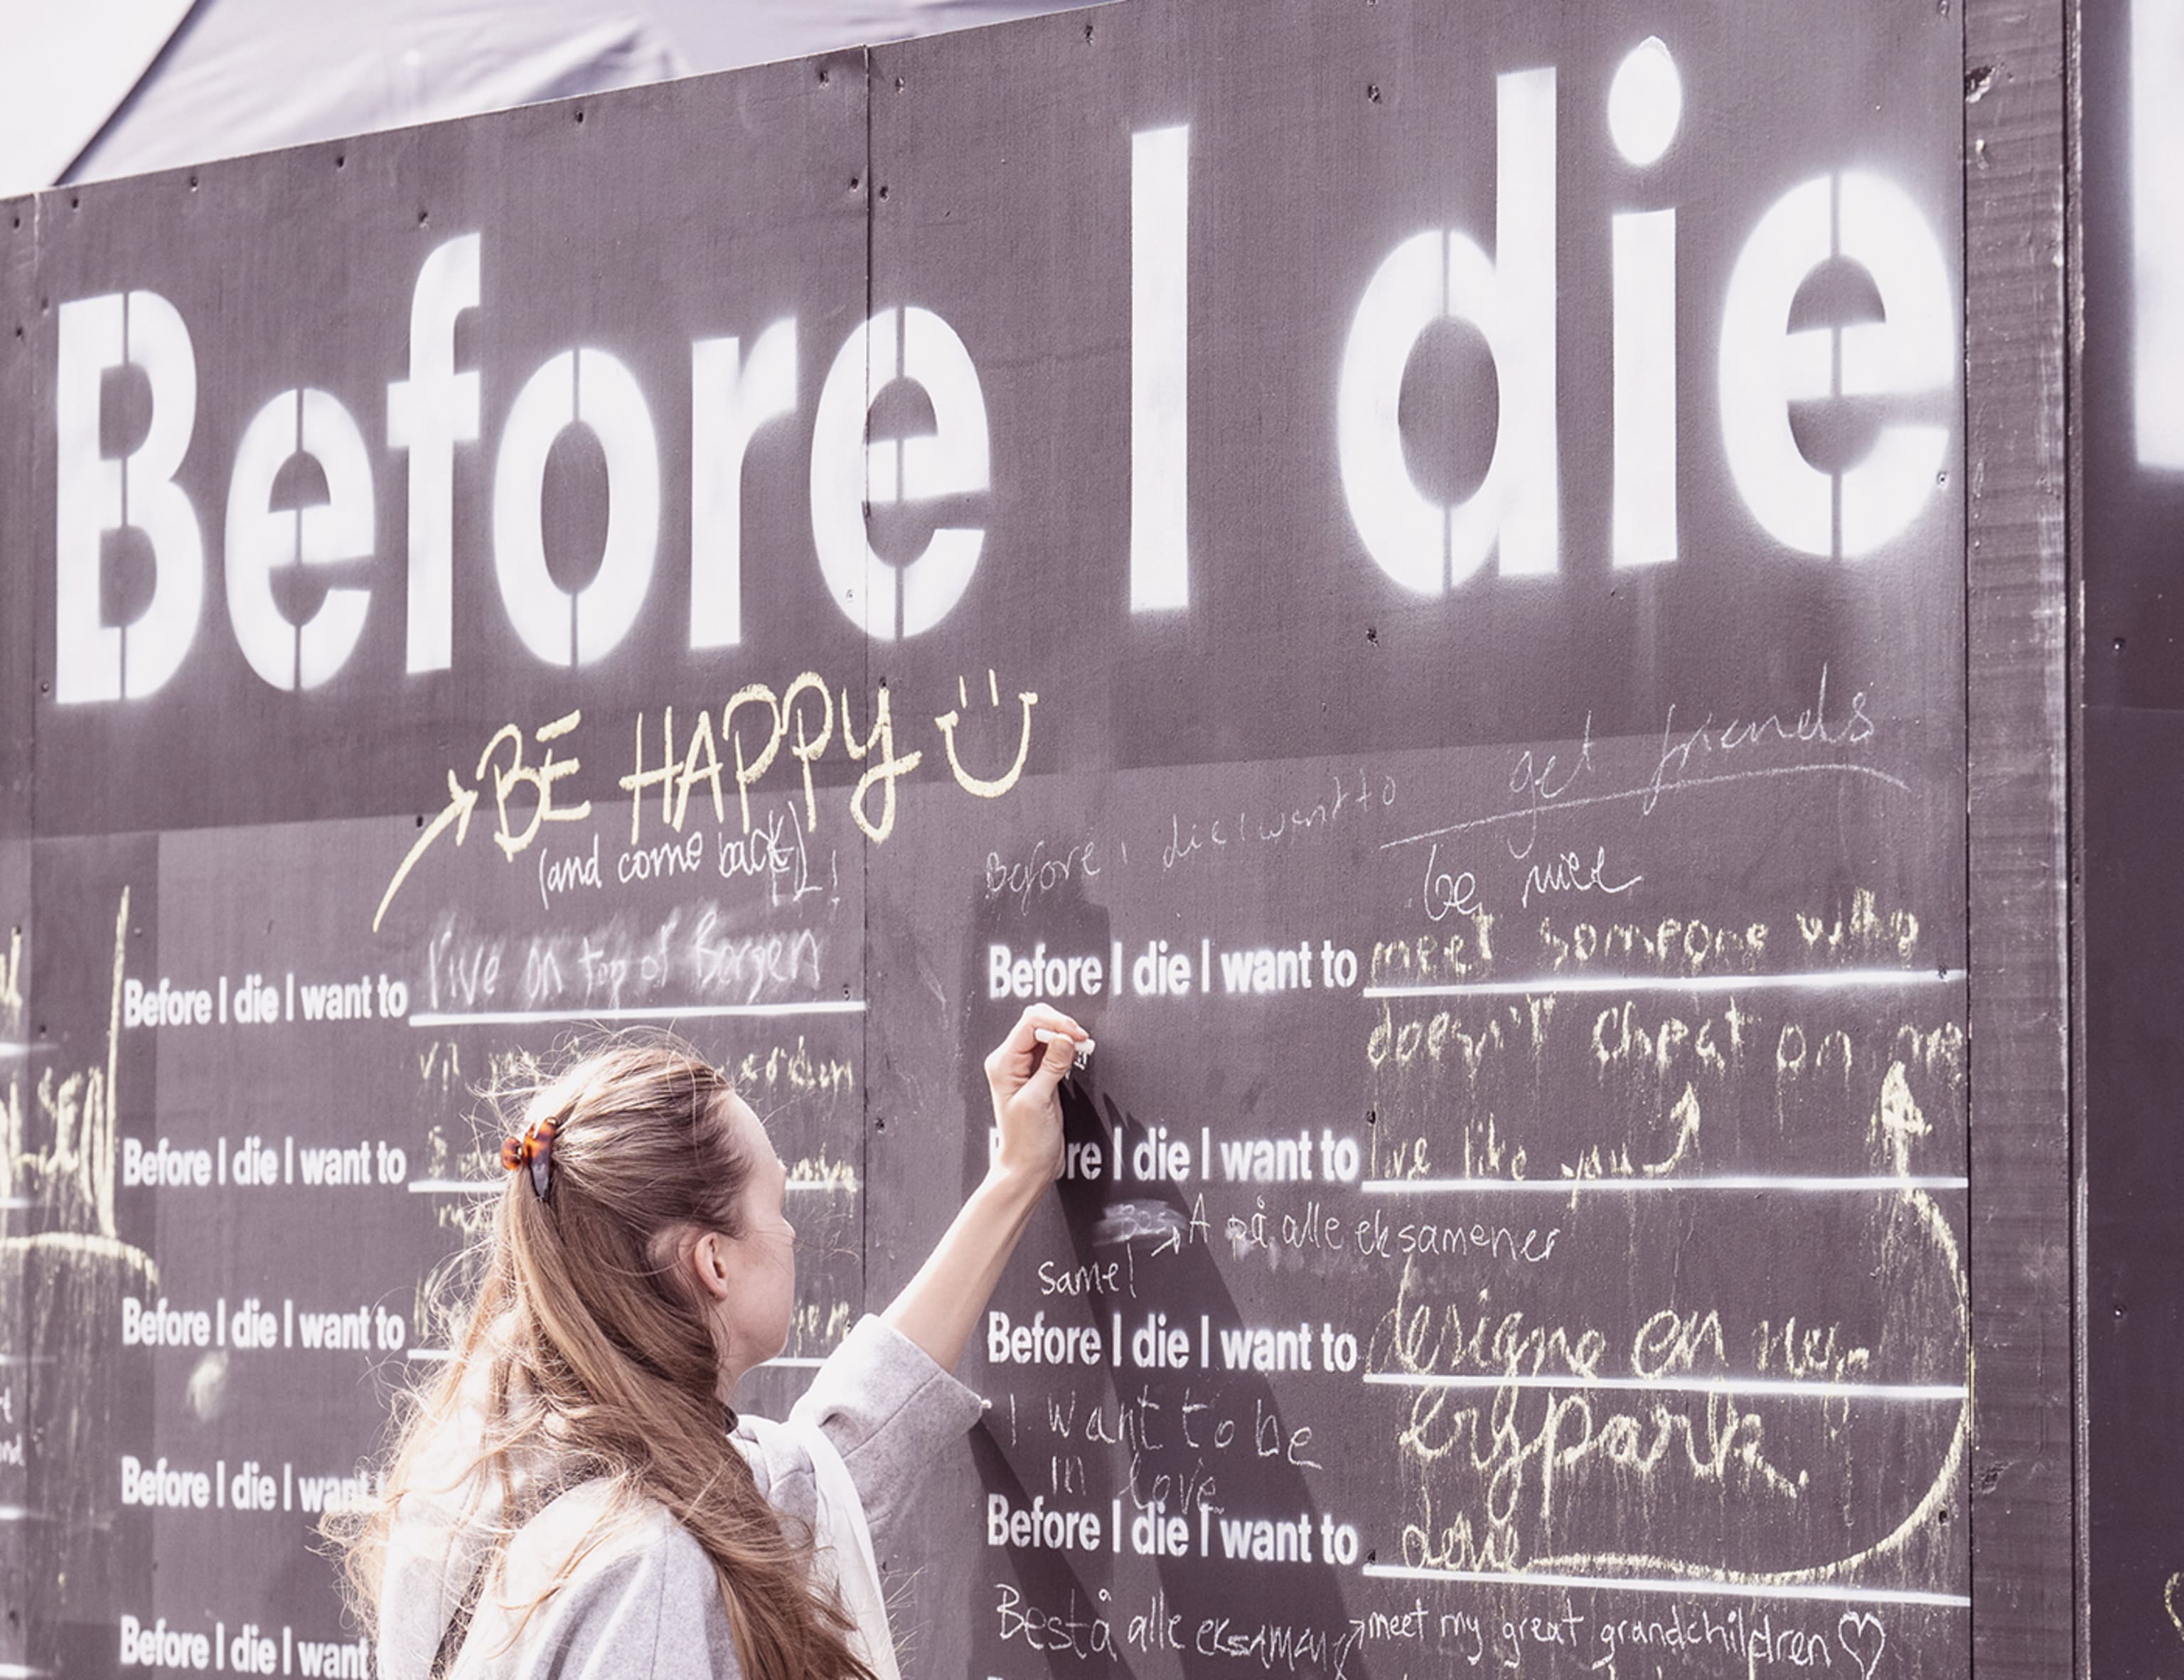 Before I die
→ BE HAPPY
(and come back)
Before I die I want to
live on top of Bergen
vil
Before I die I want to
Before I die I want to
Before I die I want
Before I die I want
Before I die I want to get friends
be nice
Before I die I want to meet someone who
doesn't cheat on me
re I die I want to live like you
→ A på alle eksamener
same!
Before I die I want to designe en
bypark
I want to be
in love
Before I die I want to done
Bestå alle eksamener
→ meet my great grandchildren ♡